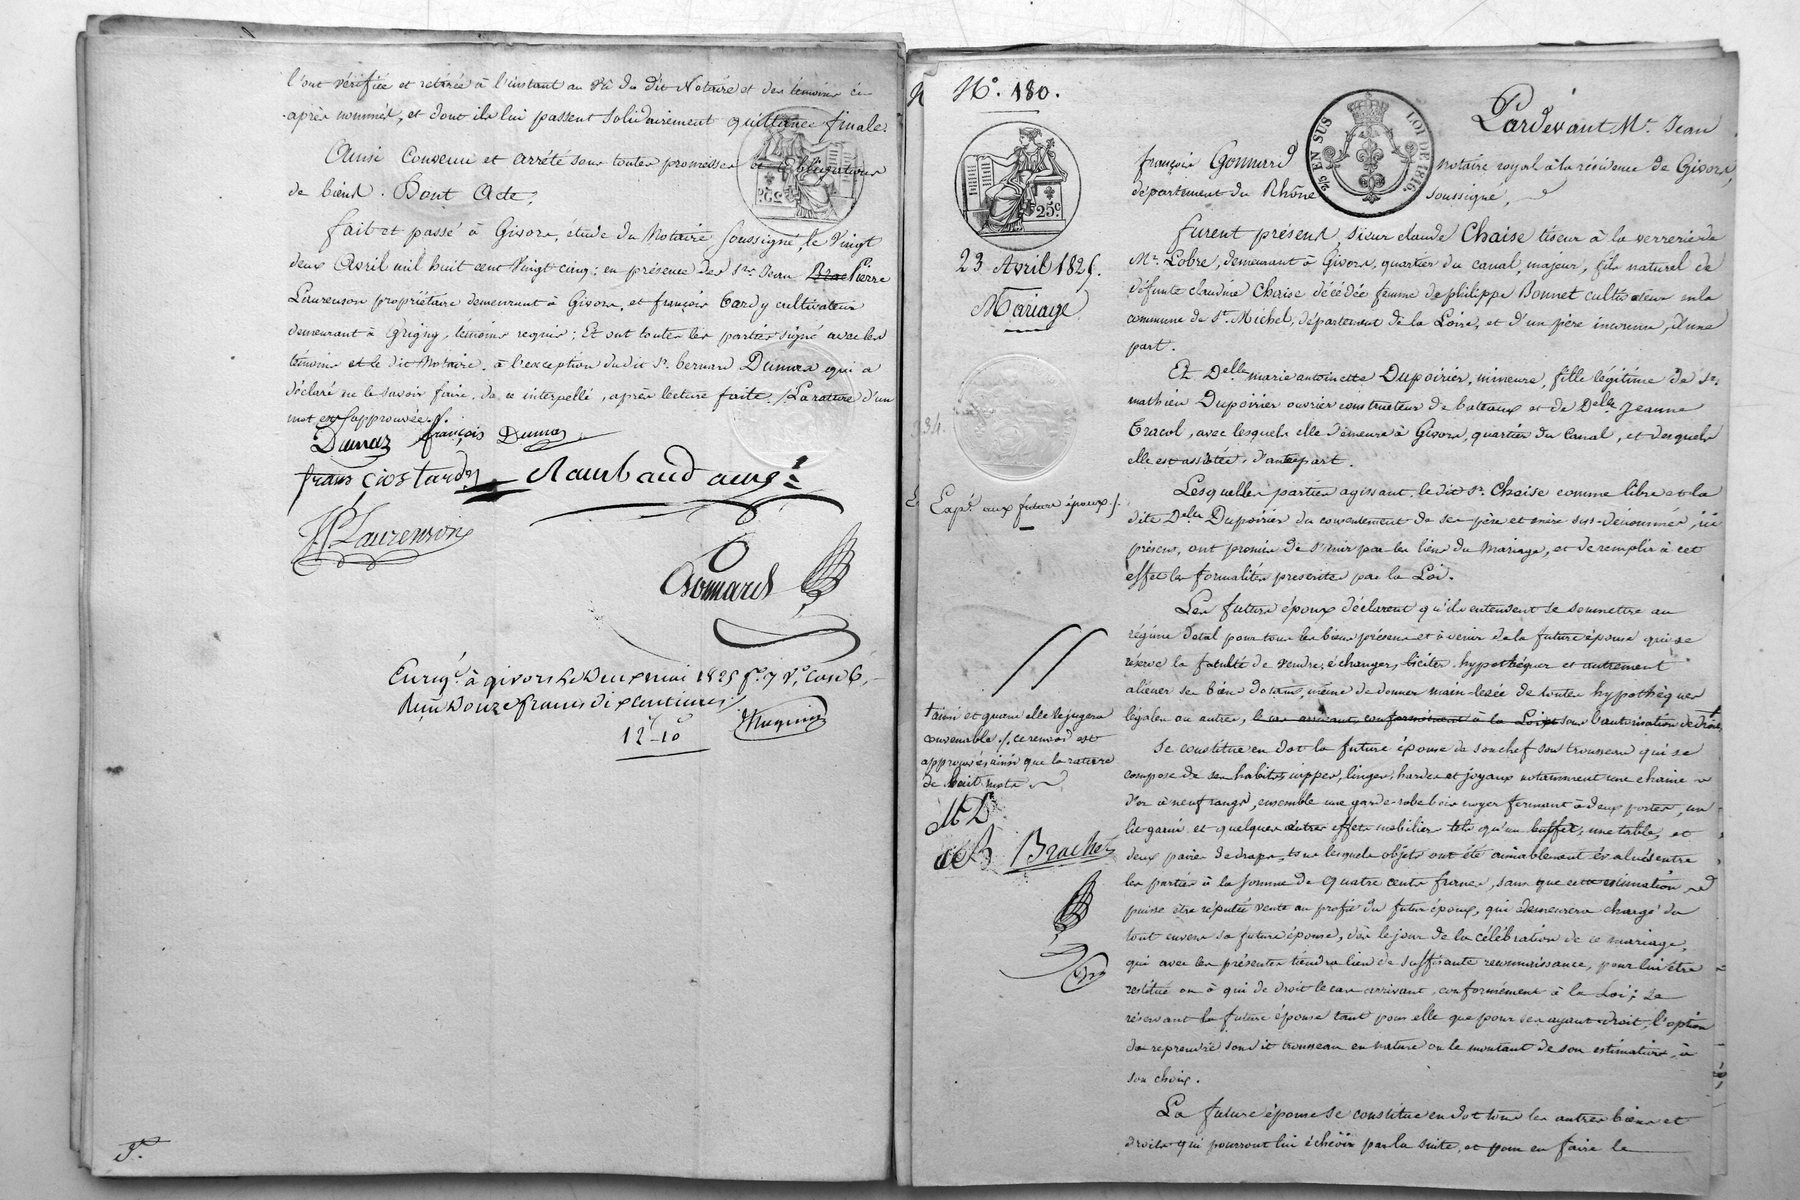 l'ont vérifiée et retirée à l'instant au vû du dit Notaire et des témoins ci-
après nommés, et dont ils lui passent solidairement quittance finale.
Ainsi Convenu et arrêté sous toutes promesses et obligations
de biens. Dont Acte,
fait et passé à Givors, étude du Notaire soussigné, le Vingt
deux Avril mil huit cent Vingt cinq; en présence des Srs Jean Pierre
Laurenson propriétaire demeurant à Givors, et françois Tardy cultivateur
demeurant à Grigny, témoins requis; Et ont toutes les parties signé avec les
témoins et le dit Notaire, à l'exception du dit Sr. bernard Dumas qui a
déclaré ne le savoir faire, de ce interpellé, après lecture faite. La rature d'un
mot est approuvée.
Dumas françois Dumas
francios tardy Rambaud
JP Laurenson
Gonnard
Enregé. à givors le Deux mai 1825 fo. 7 Vo. Case 6,
Reçu Douze francs dix centimes
12f-10c
No. 180.
25c.
23 Avril 1825.
Mariage
Expé. aux futurs époux
EN SUS
LOI DE 1816.
Pardevant Me. Jean
françois Gonnard notaire royal à la résidence de Givors,
département du Rhône soussigné,
furent présens, sieur claude Chaise tiseur à la verrerie de
Mr. Lobre, demeurant à Givors, quartier du canal, majeur, fils naturel de
défunte claudine Chaise décédée femme de philippe Bonnet cultivateur en la
commune de St. Michel, département de la Loire, et d'un père inconnu, d'une
part.
Et Delle marie antoinette Dupoirier, mineure, fille légitime de Sr.
mathieu Dupoirier ouvrier constructeur de bateaux et de Delle Jeanne
Tracol, avec lesquels elle demeure à Givors, quartier du Canal, et desquels
elle est assistée, d'autre part.
Lesquelles parties agissant, le dit Sr. Chaise comme libre et la
dite Delle Dupoirier du consentement de ses père et mère sus-dénommés, ici
présens, ont promis de s'unir par les liens du mariage, et de remplir à cet
effet les formalités prescrites par la Loi.
Les futurs époux déclarent qu'ils entendent se soumettre au
régime dotal pour tous les biens présens et à venir de la future épouse qui se
réserve la faculté de vendre, échanger, liciter, hypothéquer et autrement
aliéner ses biens dotaux, même de donner main-levée de toutes hypothèques
légales ou autres, le cas arrivant, conformément à la Loi sous l'autorisation de droit,
† ainsi et quand elle le jugera
convenable /. ce renvoi est
approuvé ainsi que la rature
de huit mots
M D
Brachet
Se constitue en dot la future épouse de son chef son trousseau qui se
compose de ses habits, nippes, linges, hardes et joyaux notamment une chaine
d'or à neuf rangs, ensemble une garde-robe bois noyer fermant à deux portes, un
lit garni et quelques autres effets mobiliers tels qu'un buffet, une table, et
deux paires de draps, tous lesquels objets ont été aimablement évalués entre
les parties à la somme de quatre cents francs, sans que cette estimation
puisse être réputée vente au profit du futur époux, qui demeurera chargé du
tout envers sa future épouse, dès le jour de la célébration de ce mariage,
qui avec les présentes tiendra lieu de suffisante reconnaissance, pour lui être
restitué ou à qui de droit le cas arrivant, conformément à la Loi; se
réservant la future épouse tant pour elle que pour ses ayant-droit, l'option
de reprendre son dit trousseau en nature ou le montant de son estimation, à
son choix.
La future épouse se constitue en dot tous les autres biens et
droits qui pourront lui échoir par la suite, et pour en faire le